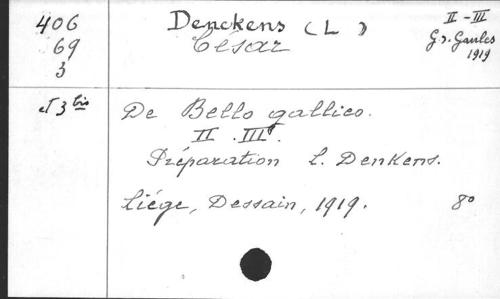 406
69
3
et 3 bis
Denckens (L)
César
II - III
G. Gaules
1919
De Bello gallico.
II. III.
Préparation L. Denkens.
Liége, Dessain, 1919. 8º